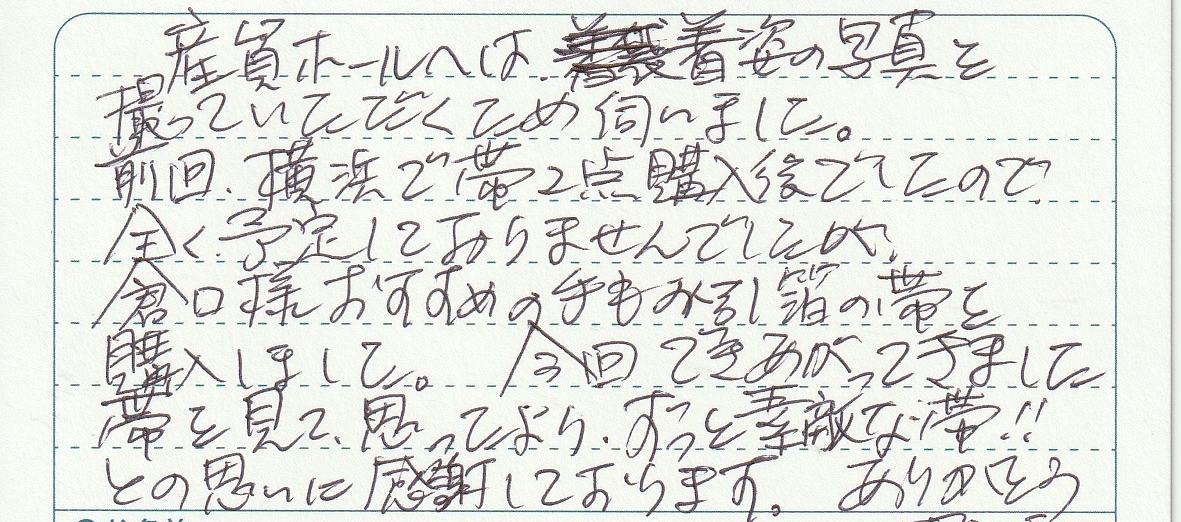 産貿ホールへは、着姿の写真を
撮っていただくため伺いました。
前回、横浜で帯2点購入後でしたので
全く予定しておりませんでしたが、
倉口様おすすめの手もみ引箔の帯を
購入しました。 今回できあがってきました
帯を見て、思ってより、ずっと素敵な帯!!
との思いに感謝しております。 ありがとう